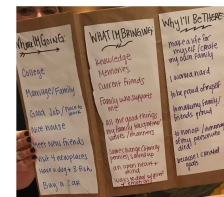 Where I'm GOING:
College
Marriage/Family
Good Job/
nice house
Meet new friends
visit new places
have a dog + 3 fish
Buy a car
WHAT I'M BRINGING
Knowledge
Memories
Current friends
Family who supports
me
All the good things
my family taught me
values / manners
some change (family
pennies) saved up
an open heart +
mind
Why I'll Be THERE:
make a life for
myself / create
my own family
I worked hard
to be proud of myself
to make my family/
friends proud
because I created
goals